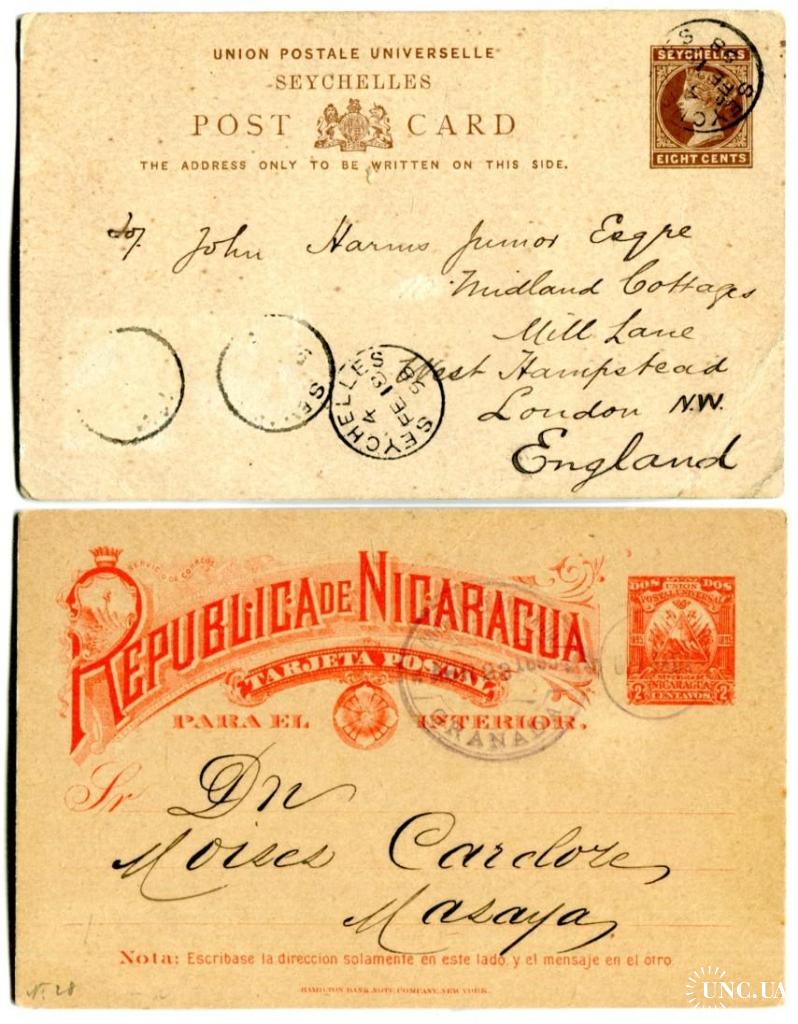 UNION POSTALE UNIVERSELLE
SEYCHELLES
POST CARD
THE ADDRESS ONLY TO BE WRITTEN ON THIS SIDE.
SEYCHELLES
EIGHT CENTS
John Harms Junior Esqre
Midland Cottages
Mill Lane
West Hampstead
London N.W.
England
SEYCHELLES
4
FE 13
98
SERVICIO DE CORREOS
REPUBLICA DE NICARAGUA
TARJETA POSTAL
PARA EL INTERIOR.
DOS DOS
UNION
POSTAL UNIVERSAL
NICARAGUA
2 CENTAVOS 2
GRANADA
Sr Dn
Moises Cardoze
Masaya
Nota: Escribase la direccion solamente en este lado, y el mensaje en el otro.
HAMILTON BANK NOTE COMPANY, NEW YORK.
N. 28
UNC.UA